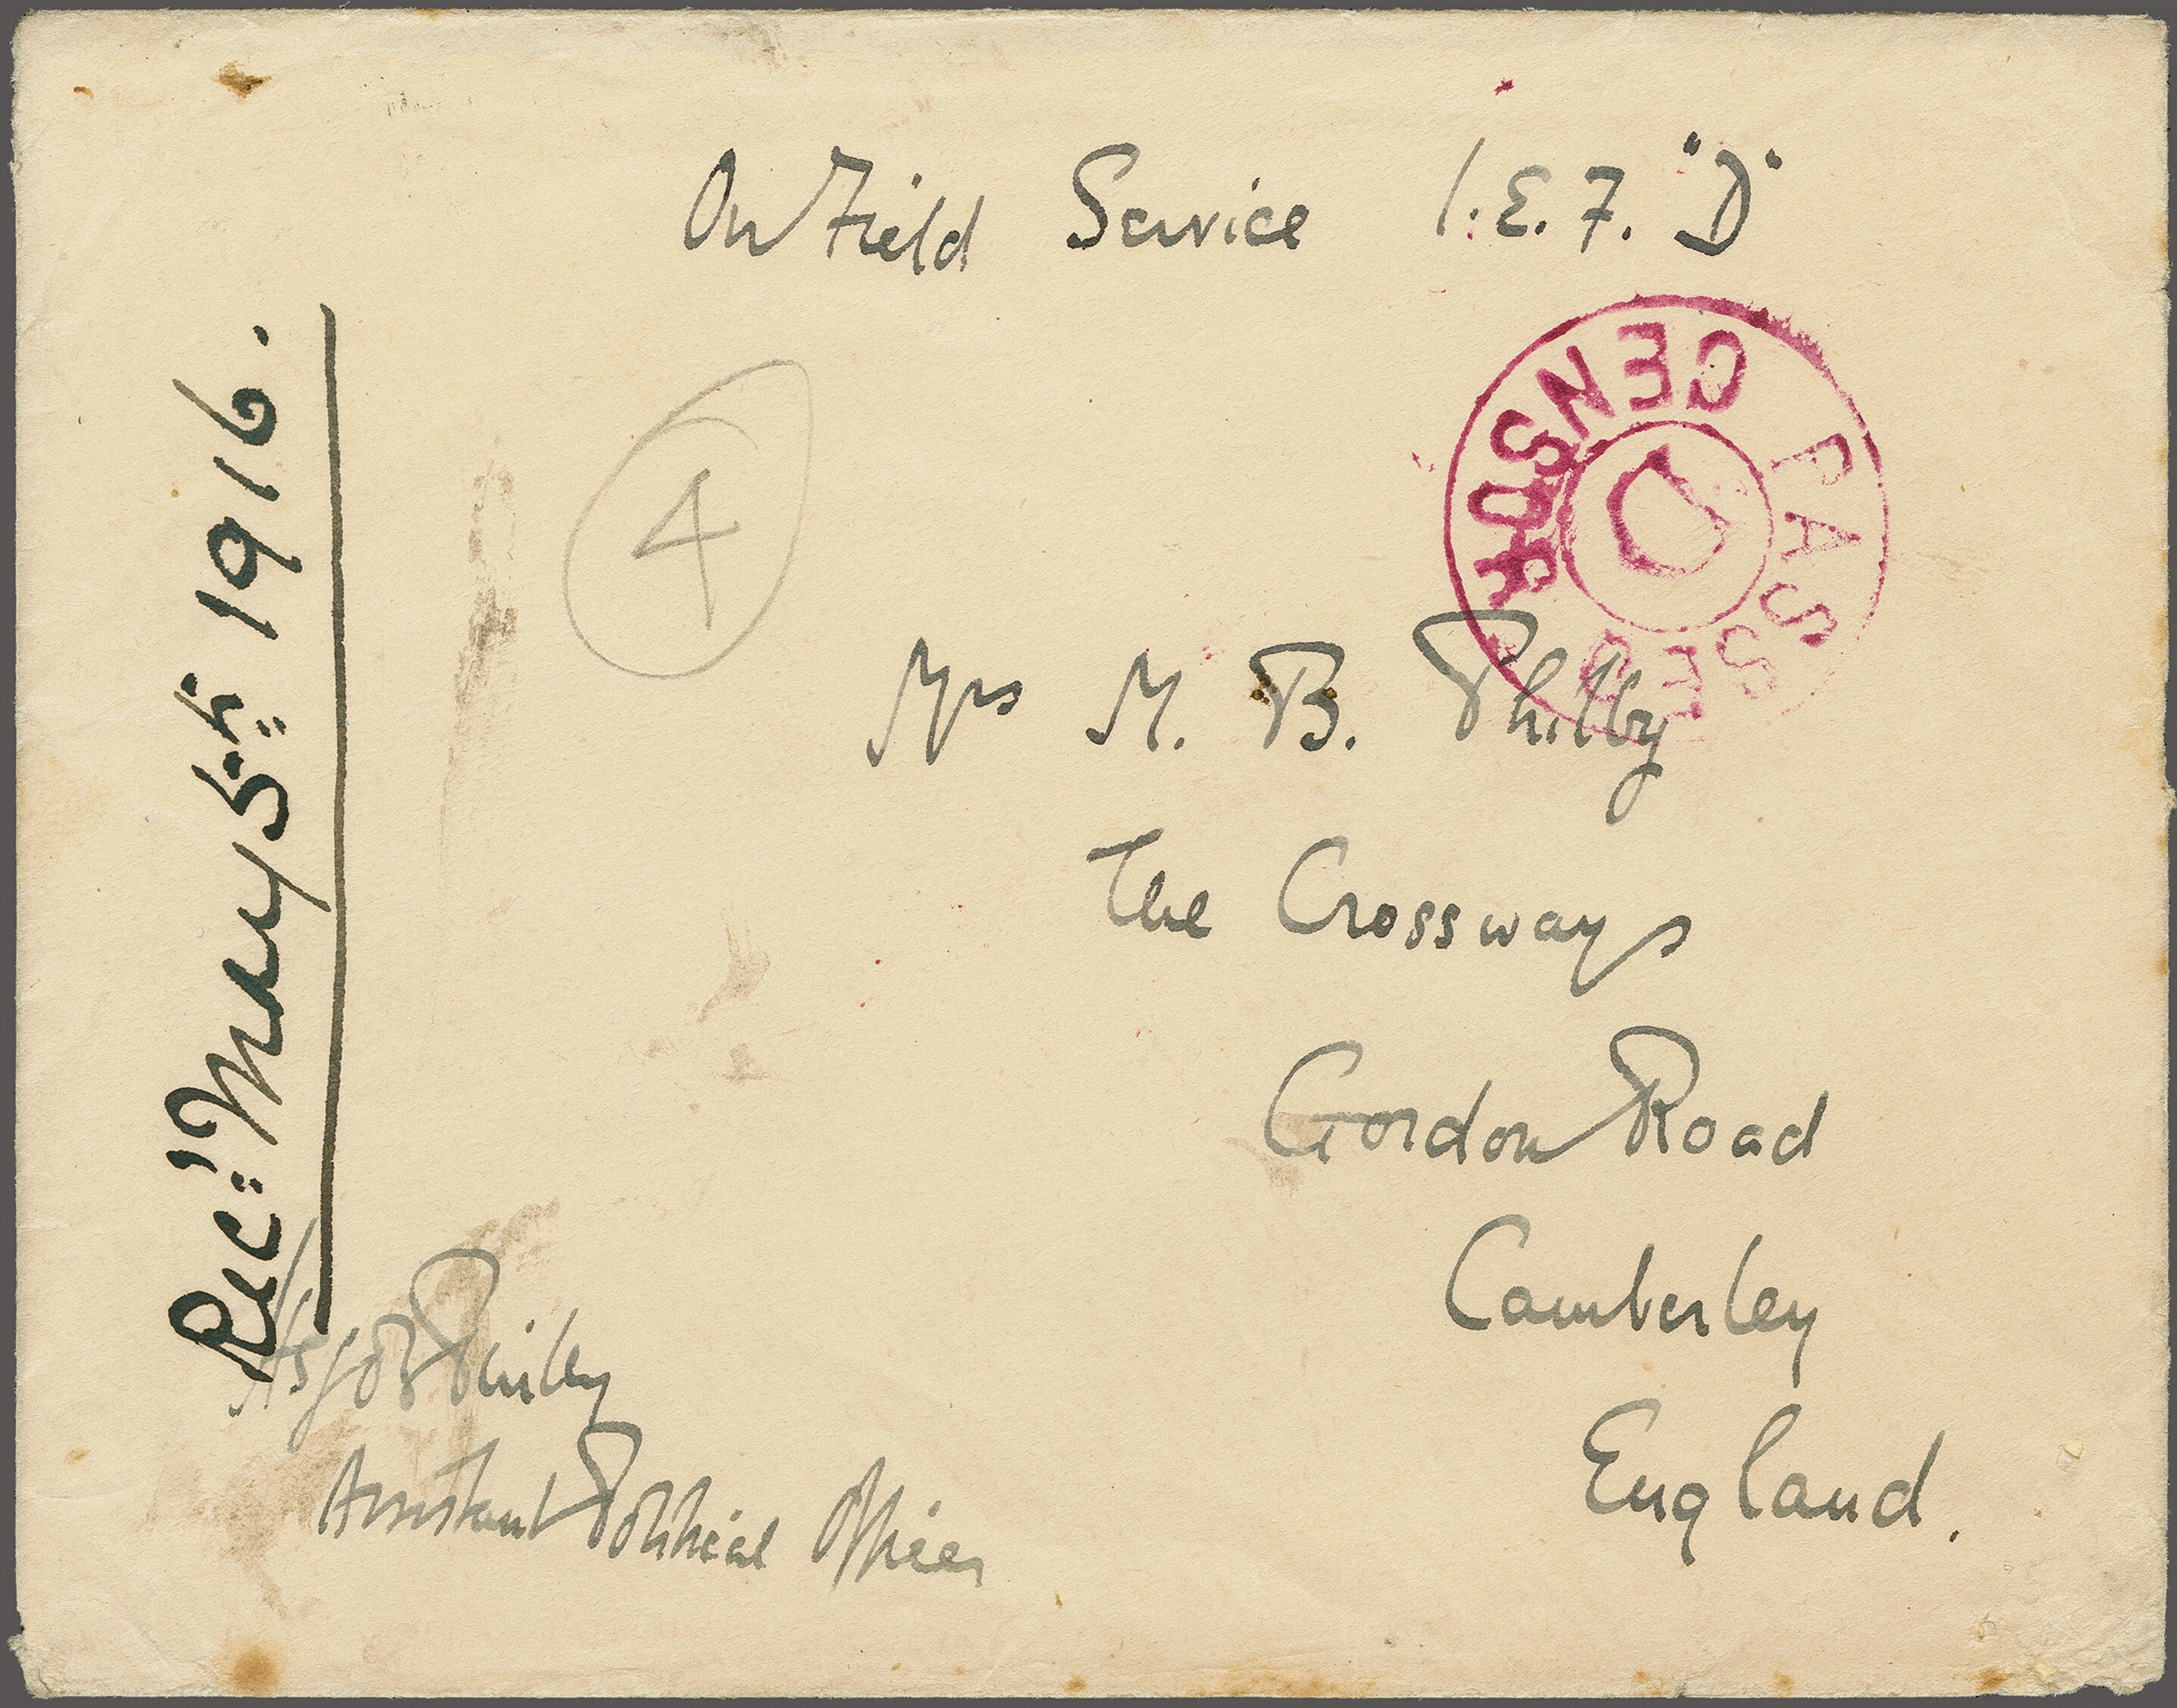 On Field Service I.E.F. "D"
PASSED CENSOR
D
4
Mrs M. B. Philby
The Crossways
Gordon Road
Camberley
England.
Rec: May 5th 1916.
Philby
Assistant Political Officer